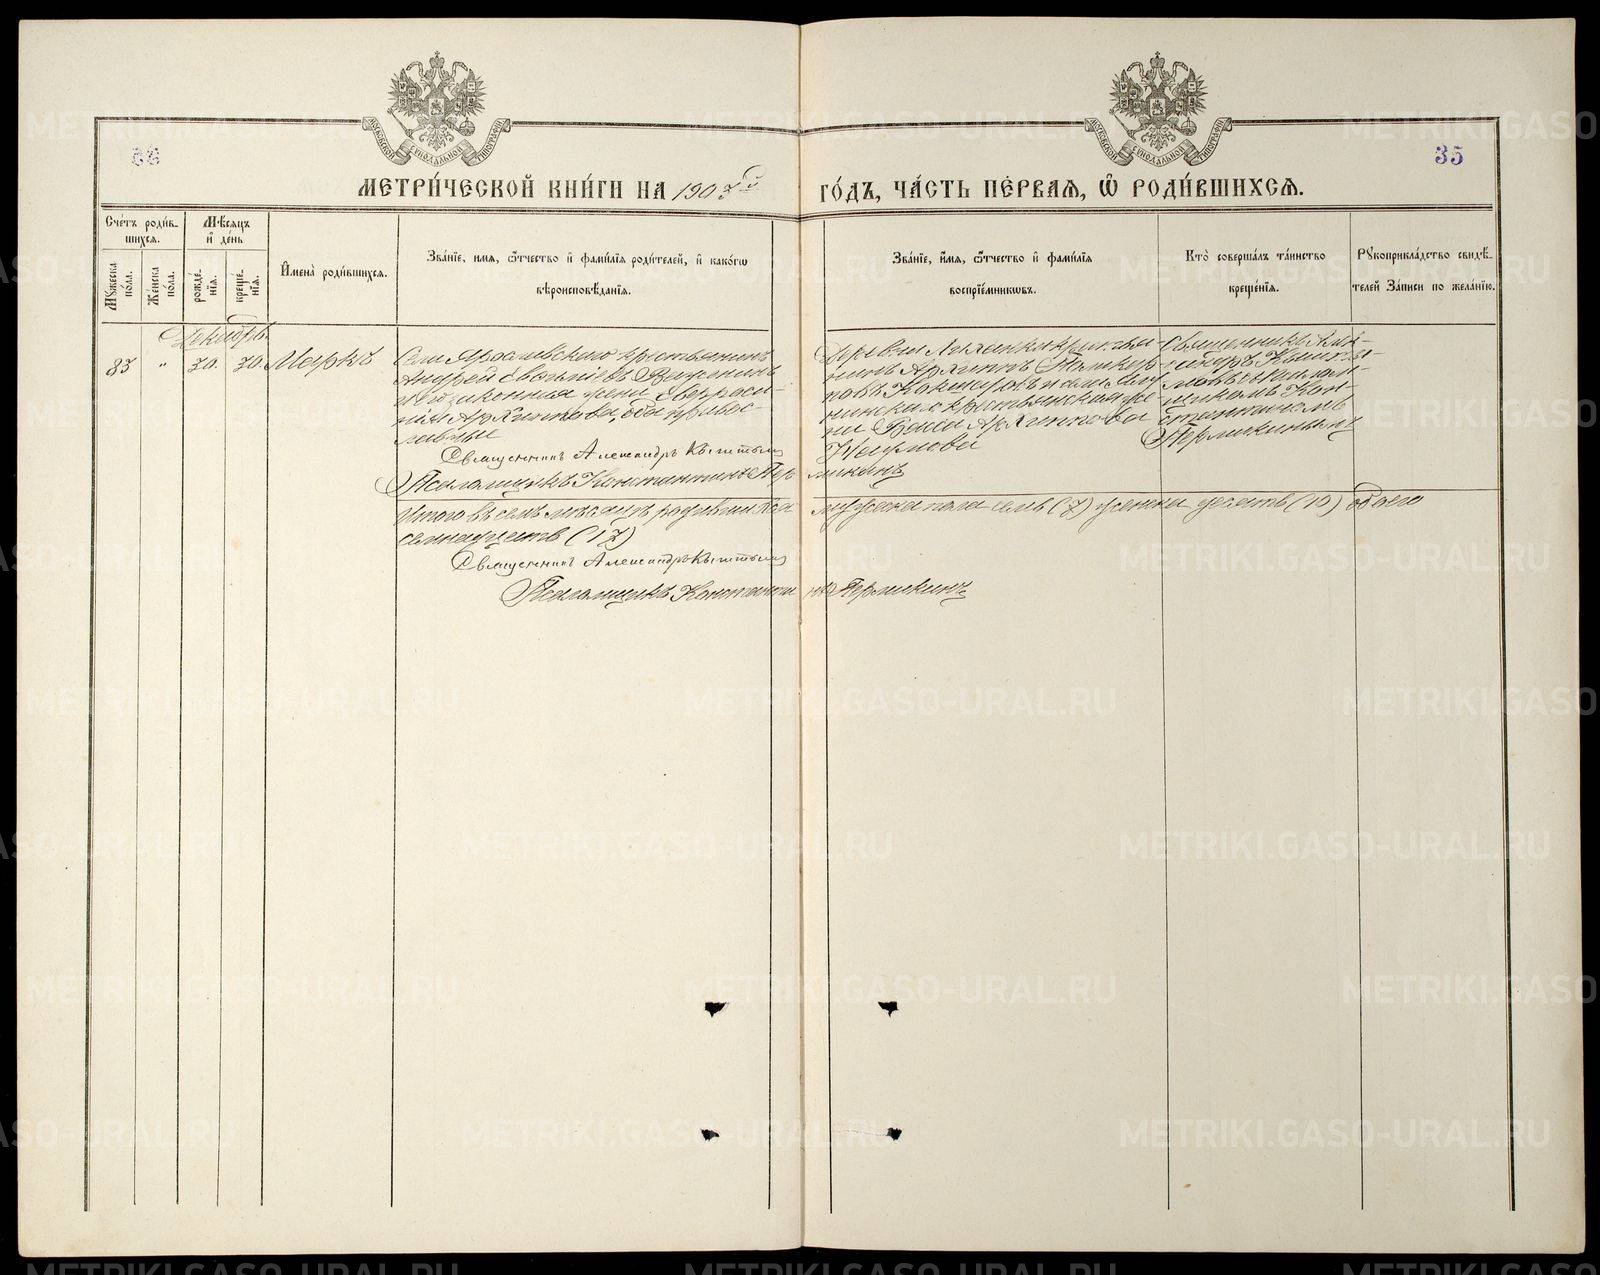 МОСКОВСКОЙ СѴНОДАЛЬНОЙ ТИПОГРАФІИ
МОСКОВСКОЙ СѴНОДАЛЬНОЙ ТИПОГРАФІИ
35
МЕТРИ́ЧЕСКОЙ КНИ́ГИ НА 190
ГО́ДЪ, ЧА́СТЬ ПЕ́РВАЯ, Ѡ҆ РОДИ́ВШИХСЯ.
Сче́тъ роди́в-
шихся.
Мѣсяцъ
и҆ де́нь
Мꙋжеска по́ла.
Же́нска по́ла.
рожде́нїя.
креще́нїя.
И҆мена̀ роди́вшихся.
Зва́нїе, имя, ѻ҆́тчество и҆ фами́лїя роди́телей, и҆ како́гѡ
вѣроисповѣ́данїя.
Зва́нїе, и҆́мя, ѻ҆́тчество и҆ фами́лїя
воспрїе́мникѡвъ.
Кто̀ соверша́лъ та́инство
креще́нїя.
Рꙋкоприкла́дство свидѣ́-
телей За́писи по жела́нїю.
Декабрь.
83 " 30. 30. Маркъ
Села Ярославского крестьянинъ
Андрей
и законная жена Евфроси-
нія Архипова, оба правос-
лавные
Деревни крестья-
нинъ Архиппъ
и села
крестьянская же-
на Архиппова
Священникъ Алек-
сандръ Кышты-
мовъ съ псалом-
щикомъ Кон-
стантиномъ
Пермикинымъ
Священникъ Александръ Кыштымовъ
Псаломщикъ Константинъ Пермикинъ
Итого въ семъ мѣсяцѣ родившихся мужеска пола семь (7) женска десять (10) обоего
семнадцать (17)
Священникъ Александръ Кыштымовъ
Псаломщикъ Константинъ Пермикинъ
METRIKI.GASO-URAL.RU